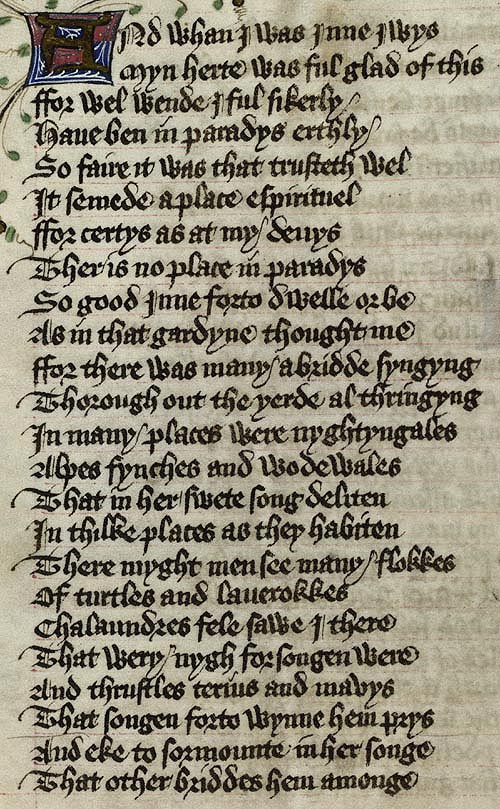 And whan I was Inne Iwys
Myn herte was ful glad of this
ffor wel wende I ful sikerly
Haue ben in paradys erthly
So faire it was that trusteth wel
It semede a place espirituel
ffor certys as at my deuys
Ther is no place in paradys
So good Inne forto dwelle or be
As in that gardyne thought me
ffor there was many a bridde syngyng
Thorough out the yerde al thringyng
In many places were nyghtyngales
Alpes fynches and wodewales
That in her swete song deliten
In thilke places as they habiten
There myght men see many flokkes
Of turtles and lauerokkes
Chalaundres fele sawe I there
That wery nygh forsongen were
And thrustles terins and mavys
That songen forto wynne hem prys
And eke to sormounte in her songe
That other briddes hem amonge